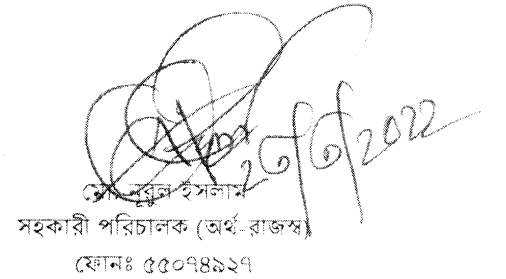 ২৩/৬/২০২২
মোঃ নূরুল ইসলাম
সহকারী পরিচালক (অর্থ-রাজস্ব)
ফোনঃ ৫৫০৭৪৯২৭